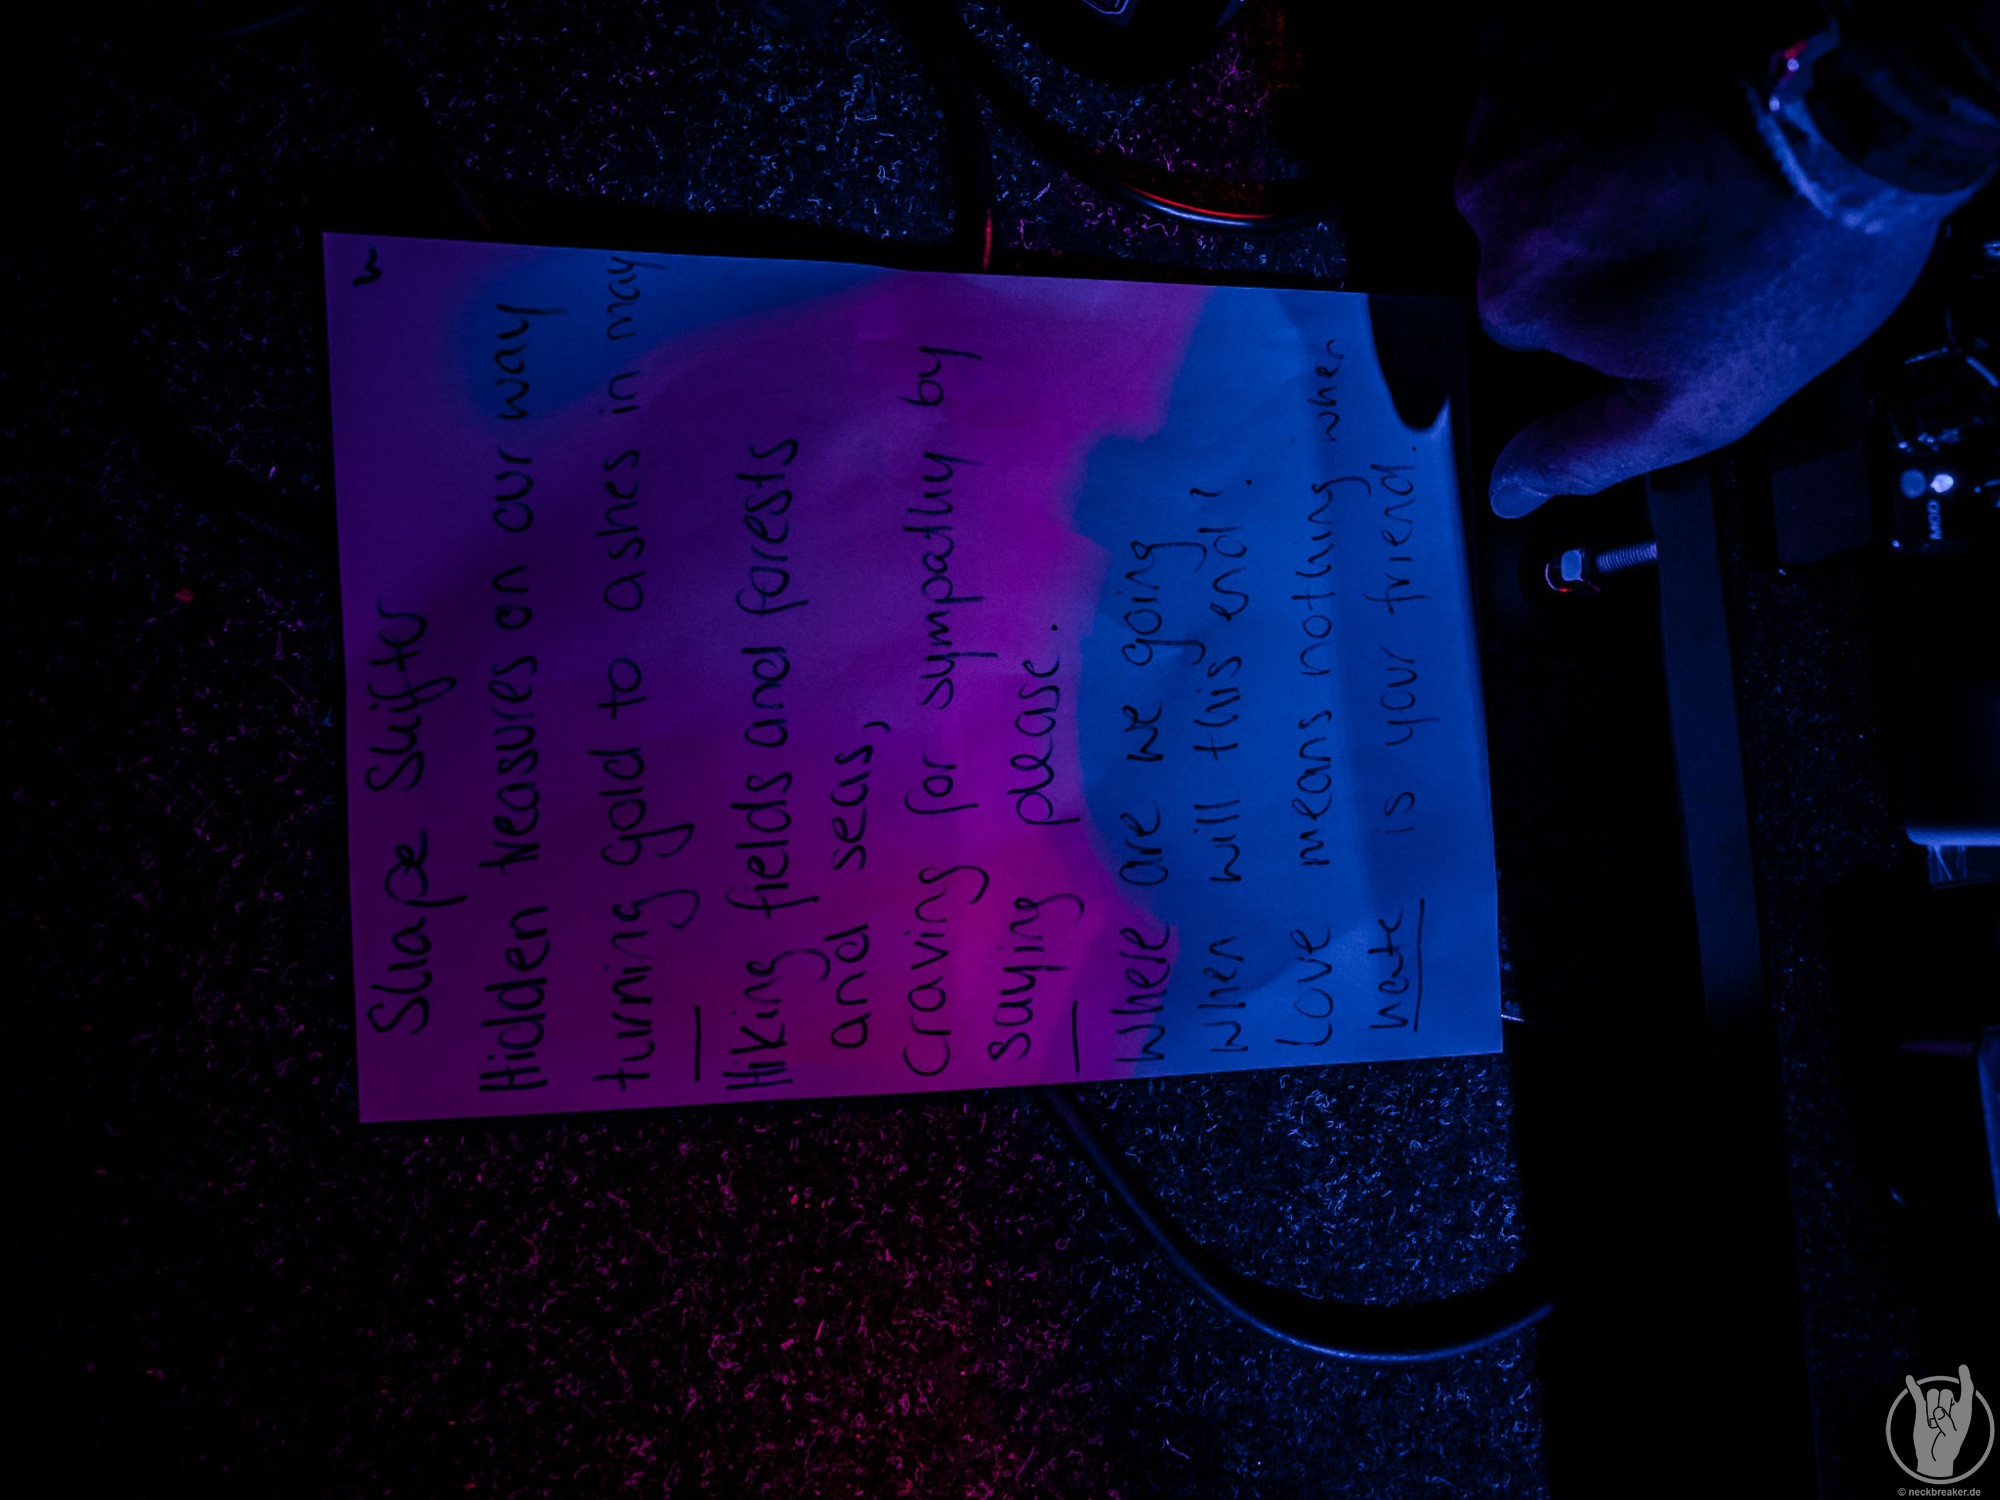 Shape Shifter
Hidden treasures on our way
turning gold to ashes in may
Hiking fields and forests
and seas,
Craving for sympathy by
saying please.
Where are we going
When will this end?
Love means nothing when
hate is your friend.
MOD
© neckbreaker.de